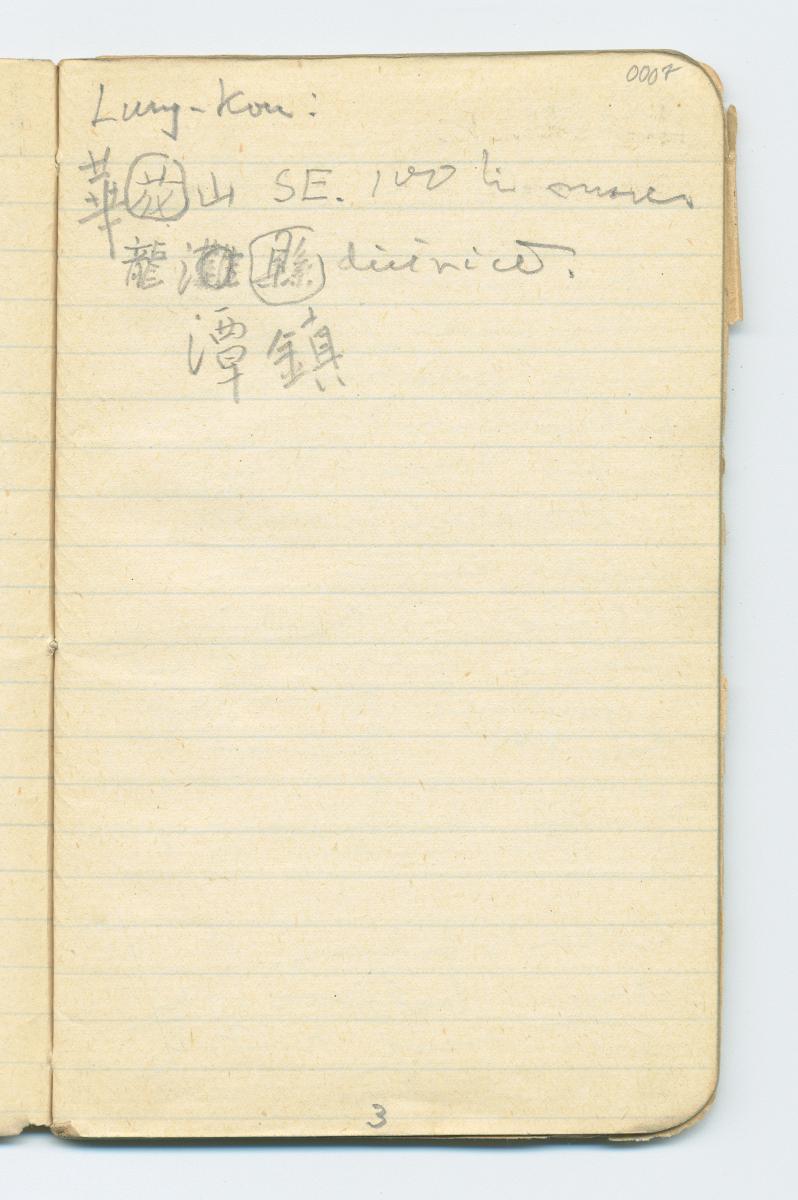 0007
Lung-Kou:
華 花 山 SE. 100 li
龍 灘 縣 district.
潭 鎮
3